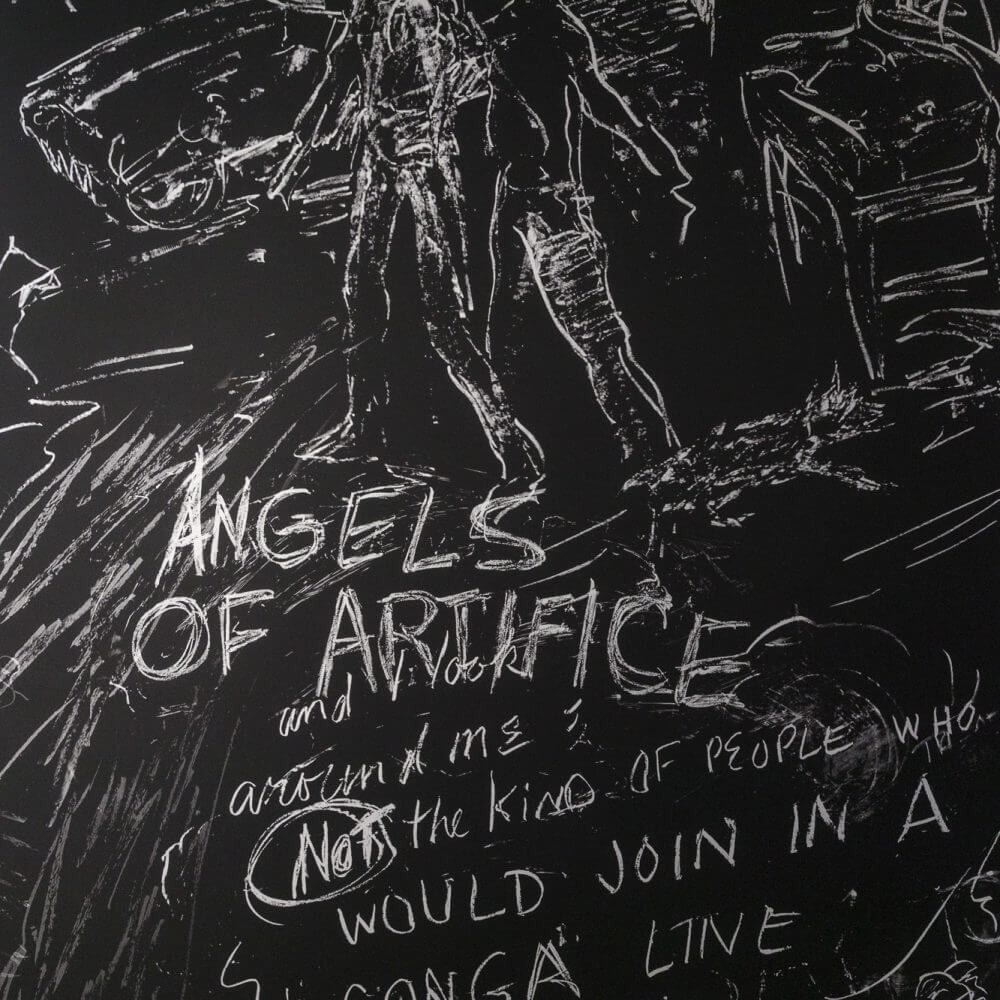 ANGELS
OF ARTIFICE
and I look
around me
NOT the KIND OF PEOPLE WHO
WOULD JOIN IN A
CONGA LINE